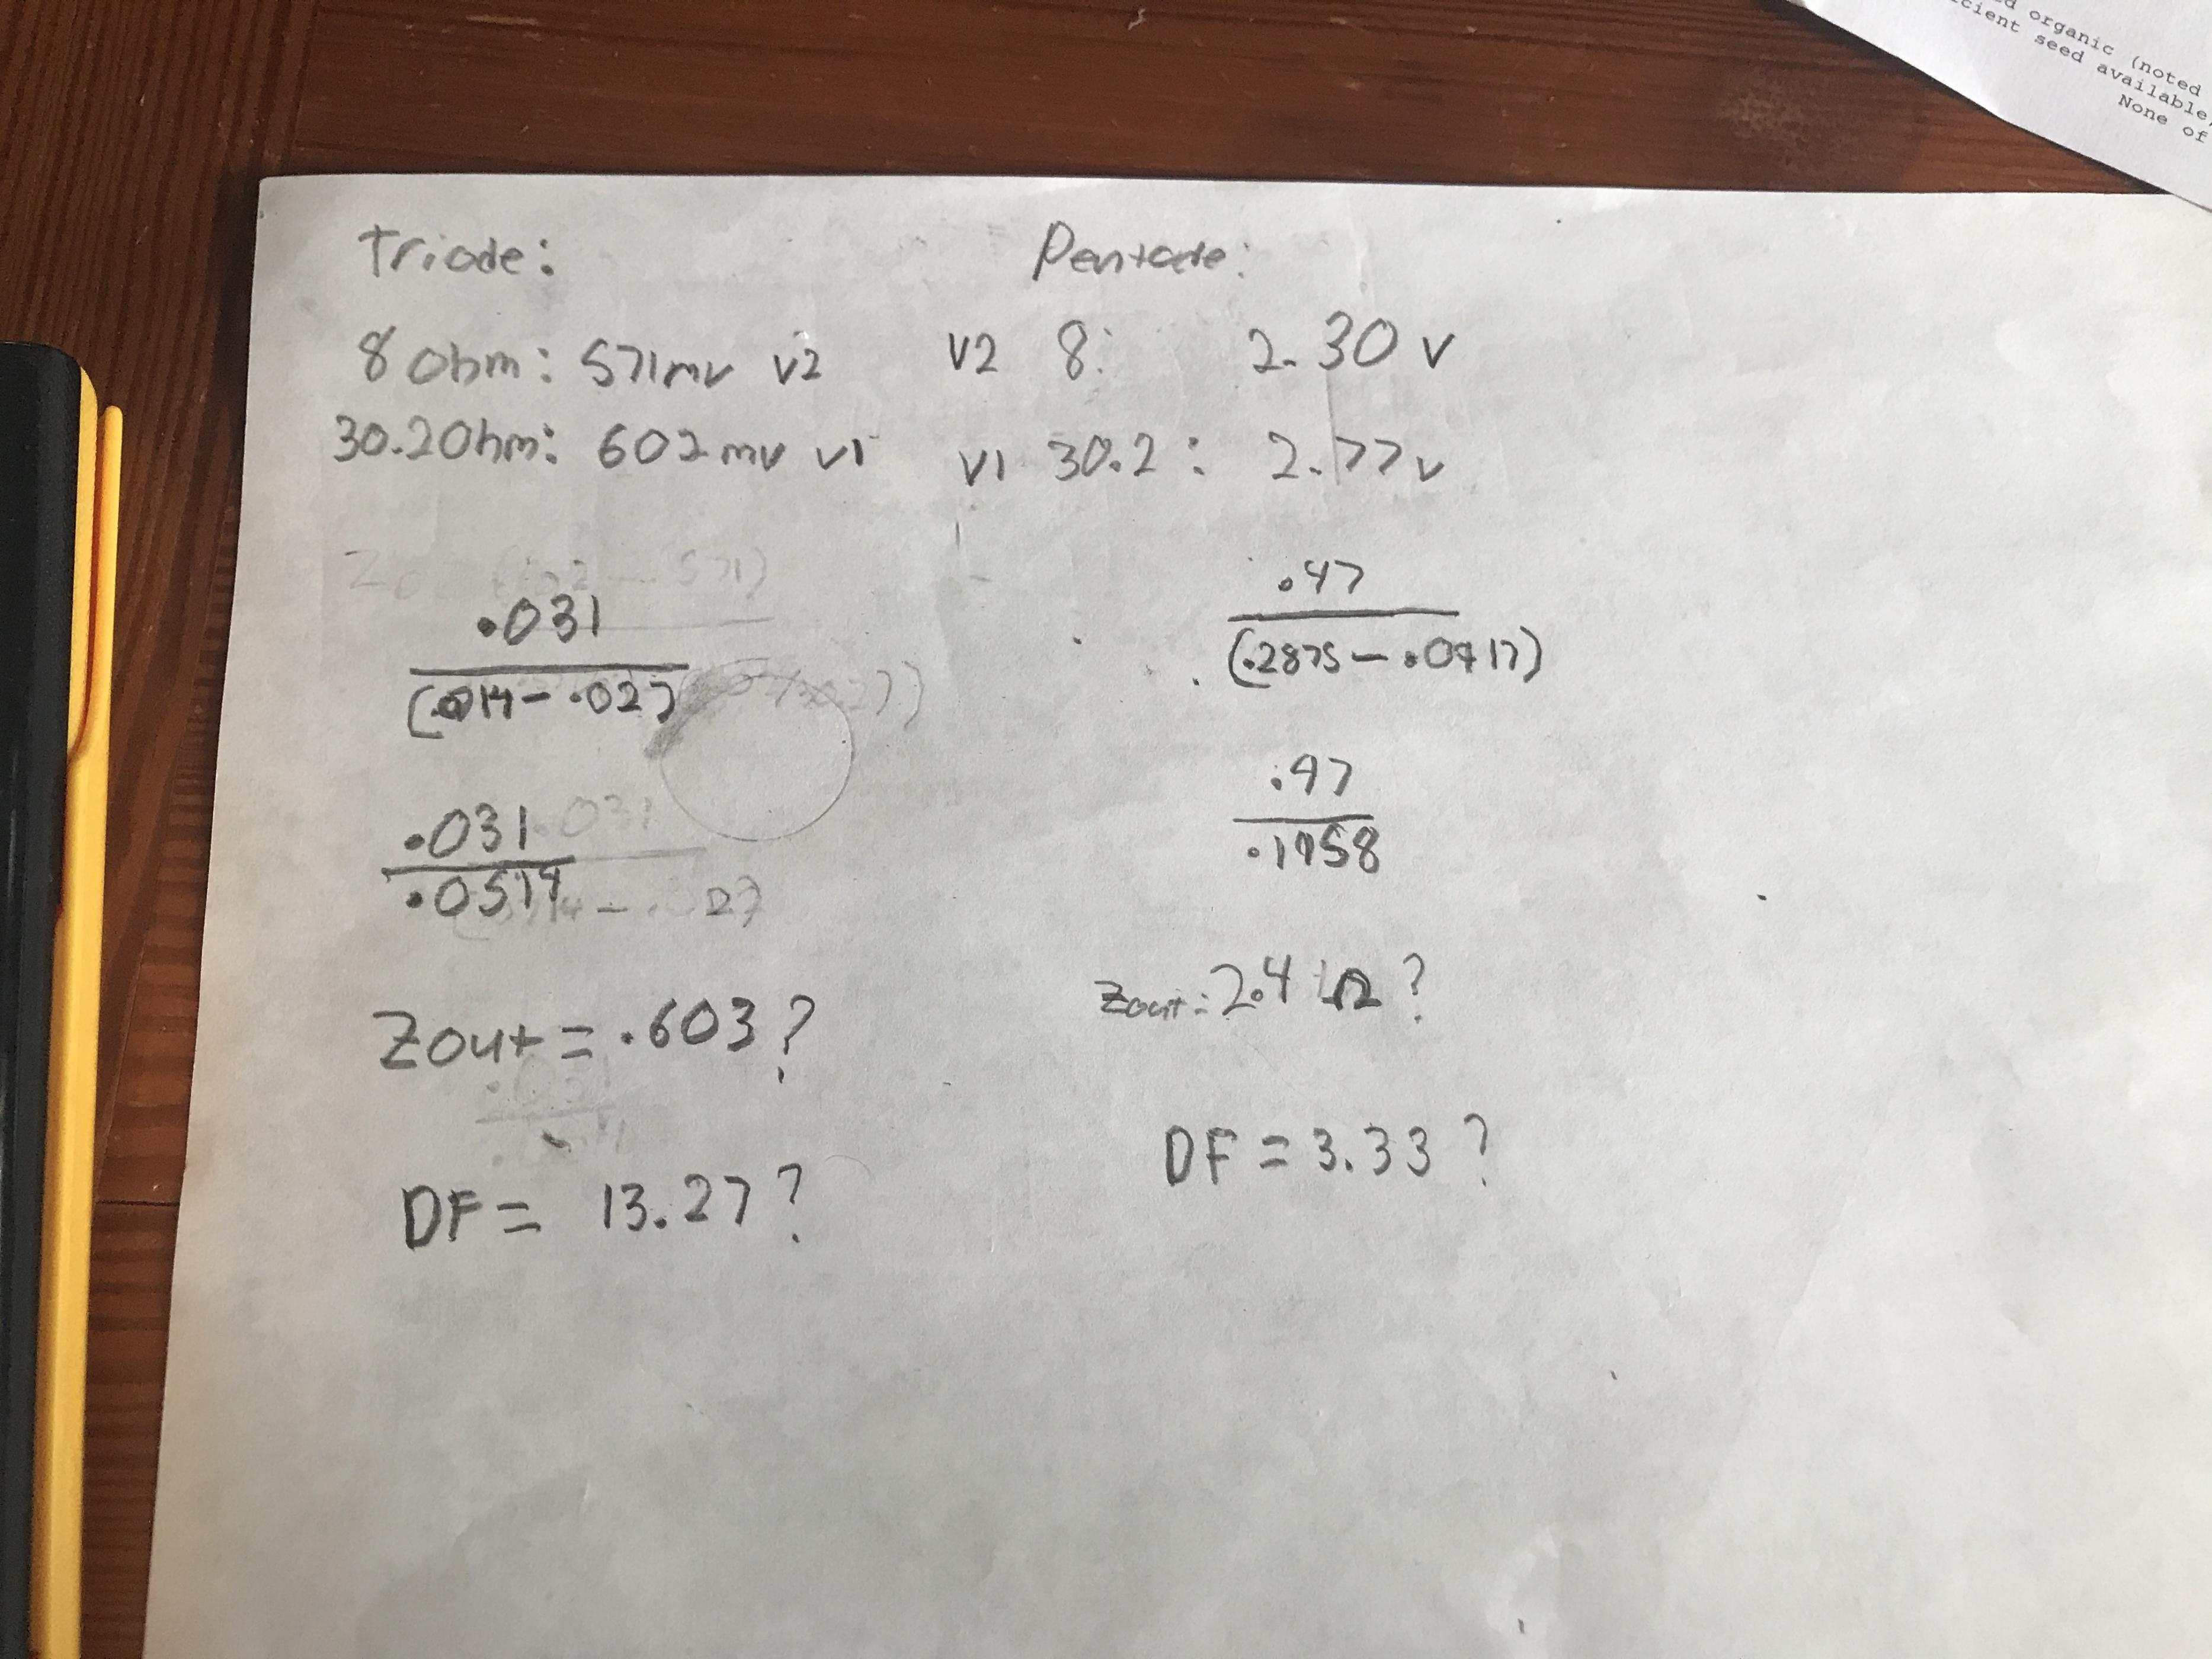 d organic (noted
cient seed available,
None of
Triode:
8 Ohm: 571mv v2
30.2 Ohm: 602mv v1
.031
(.014 - .027
.031
.0514
Zout = .603?
DF = 13.27?
Pentode:
v2 8: 2.30 v
v1 30.2: 2.77v
.47
(.2875 - .0917)
.47
.1958
Zout: 2.4 Ω?
DF = 3.33?